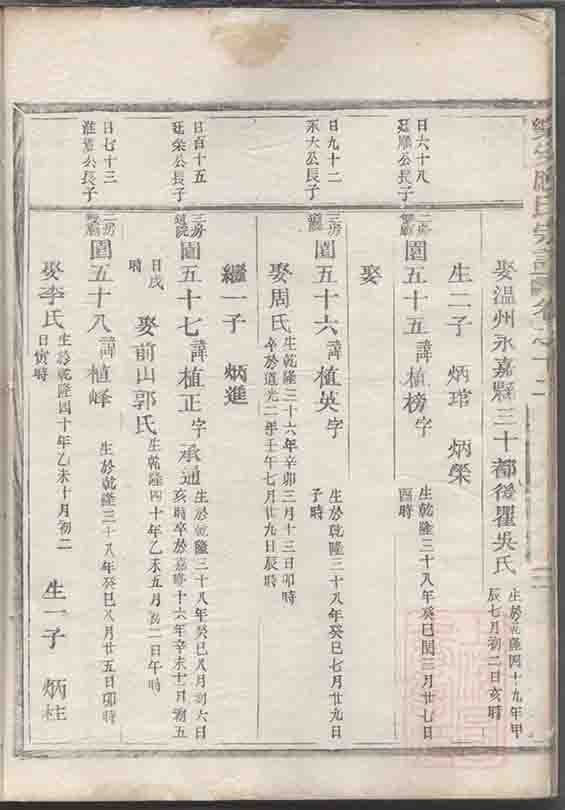 氏宗譜
娶温州永嘉縣三十都後瞿吳氏
生於乾隆四十九年甲
辰七月初二日亥時
生二子 炳琯 炳榮
日六十八
廷順公長子
二房
圓五十五 諱植榜字
生於乾隆三十八年癸巳閏三月廿七日
酉時
娶
日九十二
永大公長子
三房
圓五十六 諱植英字
生於乾隆三十八年癸巳七月廿九日
子時
娶周氏
生乾隆三十六年辛卯三月十三日卯時
卒於道光二年壬午七月廿九日辰時
繼一子 炳進
日百十五
廷榮公長子
三房
圓五十七 諱植正字 承通
生於乾隆三十八年癸巳八月初六日
亥時卒於嘉慶十六年辛未十二月初五
日戌
時
娶前山郭氏
生乾隆四十年乙未五月初二日午時
日七十三
淮公長子
二房
圓五十八 諱植峰
生於乾隆三十八年癸巳八月廿五日卯時
娶李氏
生於乾隆四十年乙未十月初二
日寅時
生一子 炳柱